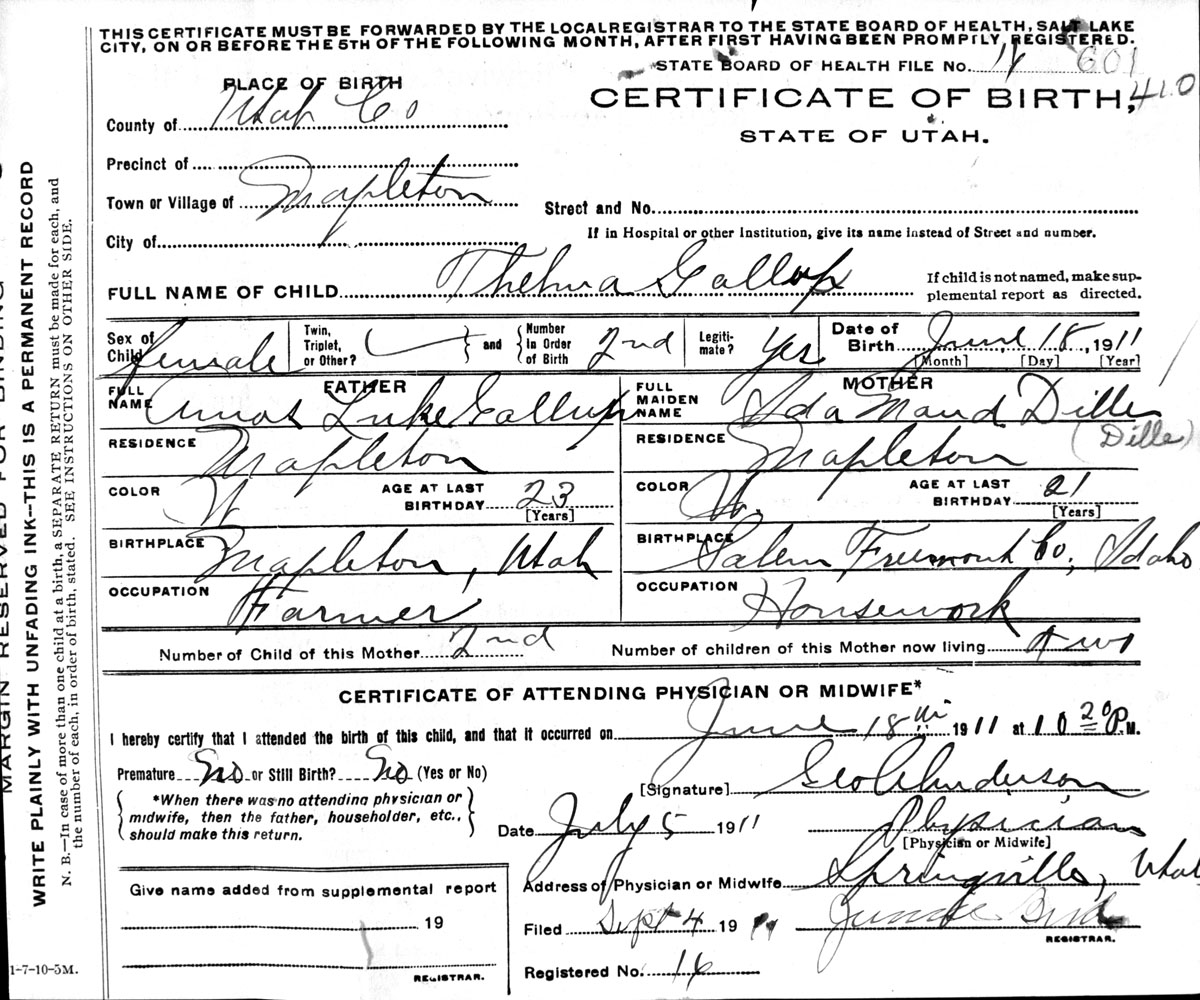 THIS CERTIFICATE MUST BE FORWARDED BY THE LOCAL REGISTRAR TO THE STATE BOARD OF HEALTH, SALT LAKE
CITY, ON OR BEFORE THE 5TH OF THE FOLLOWING MONTH, AFTER FIRST HAVING BEEN PROMPTLY REGISTERED.
STATE BOARD OF HEALTH FILE No. 601
410
PLACE OF BIRTH
CERTIFICATE OF BIRTH,
STATE OF UTAH.
County of Utah Co
Precinct of
Town or Village of Mapleton
Street and No.
City of
If in Hospital or other Institution, give its name instead of Street and number.
FULL NAME OF CHILD Thelma Gallup
If child is not named, make supplemental report as directed.
Sex of Child female
Twin, Triplet, or Other? and Number In Order of Birth 2nd
Legitimate? Yes
Date of Birth June 18, 1911
[Month] [Day] [Year]
FATHER
FULL NAME Amos Luke Gallup
MOTHER
FULL MAIDEN NAME Ida Maud Dille
(Dille)
RESIDENCE Mapleton
RESIDENCE Mapleton
COLOR W AGE AT LAST BIRTHDAY 23
[Years]
COLOR W. AGE AT LAST BIRTHDAY 21
[Years]
BIRTHPLACE Mapleton, Utah
BIRTHPLACE Salem Freemont Co, Idaho
OCCUPATION Farmer
OCCUPATION Housework
Number of Child of this Mother 2nd
Number of children of this Mother now living two
CERTIFICATE OF ATTENDING PHYSICIAN OR MIDWIFE*
I hereby certify that I attended the birth of this child, and that it occurred on June 18th 1911 at 10 20 P.M.
Premature No or Still Birth? No (Yes or No)
*When there was no attending physician or
midwife, then the father, householder, etc.,
should make this return.
[Signature] Geo A Anderson
Date July 5 1911
Physician
[Physician or Midwife]
Address of Physician or Midwife Springville, Utah
Give name added from supplemental report
19
REGISTRAR.
Filed Sept 4 19 Bird
REGISTRAR.
Registered No. 16
MARGIN RESERVED FOR BINDING
WRITE PLAINLY WITH UNFADING INK--THIS IS A PERMANENT RECORD
N. B.—In case of more than one child at a birth, a SEPARATE RETURN must be made for each, and
the number of each, in order of birth, stated. SEE INSTRUCTIONS ON OTHER SIDE.
1-7-10-5M.